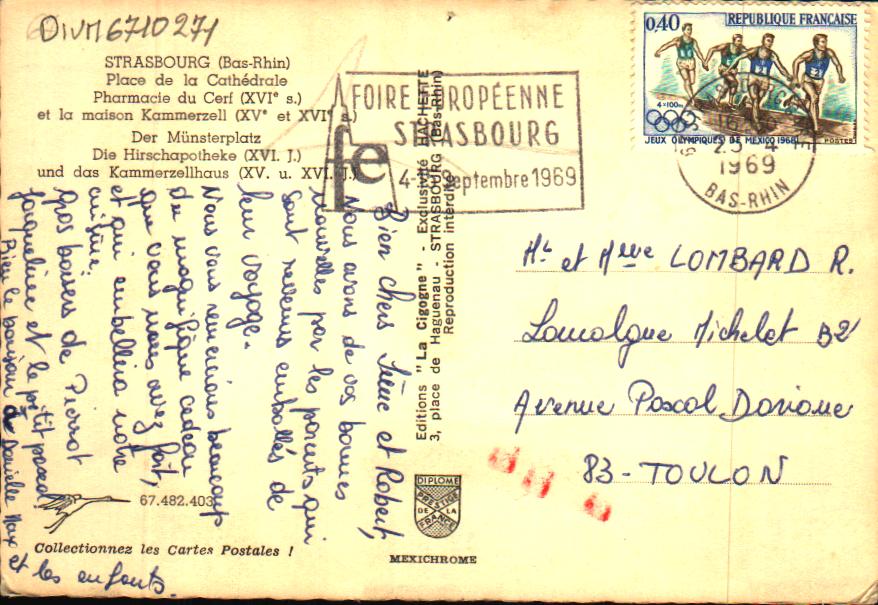 DIVM6710271
STRASBOURG (Bas-Rhin)
Place de la Cathédrale
Pharmacie du Cerf (XVIᵉ s.)
et la maison Kammerzell (XVᵉ et XVIᵉ s.)
Der Münsterplatz
Die Hirschapotheke (XVI. J.)
und das Kammerzellhaus (XV. u. XVI. J.)
FOIRE EUROPÉENNE
STRASBOURG
fe
4- septembre 1969
0,40
REPUBLIQUE FRANÇAISE
4x100m
JEUX OLYMPIQUES DE MEXICO 1968
POSTES
1969
BAS-RHIN
Bien chers Irène et Robert,
Nous avons de vos bonnes
nouvelles par les parents qui
sont revenus emballés de
leur voyage.
Nous vous remercions beaucoup
du magnifique cadeau
que vous nous avez fait,
et qui embellira notre
cuisine.
Gros baisers de Pierrot
Jacqueline et le p'tit
Bien le bonjour de Danielle Max
et les enfants.
Editions "La Cigogne" - Exclusivité HACHETTE
3, place de Haguenau - STRASBOURG (Bas-Rhin)
Reproduction interdite
Mr et Mme LOMBARD R.
Lamalgue Michelet B2
Avenue Pascal
83 - TOULON
67.482.403
Collectionnez les Cartes Postales !
DIPLOME
PRESTIGE
DE LA
FRANCE
MEXICHROME